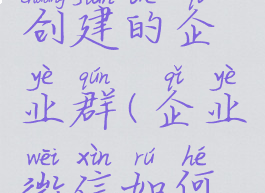 chuàng jiàn de qǐ
创建的企
yè qún qǐ yè
业群(企业
wēi xìn rú hé
微信如何